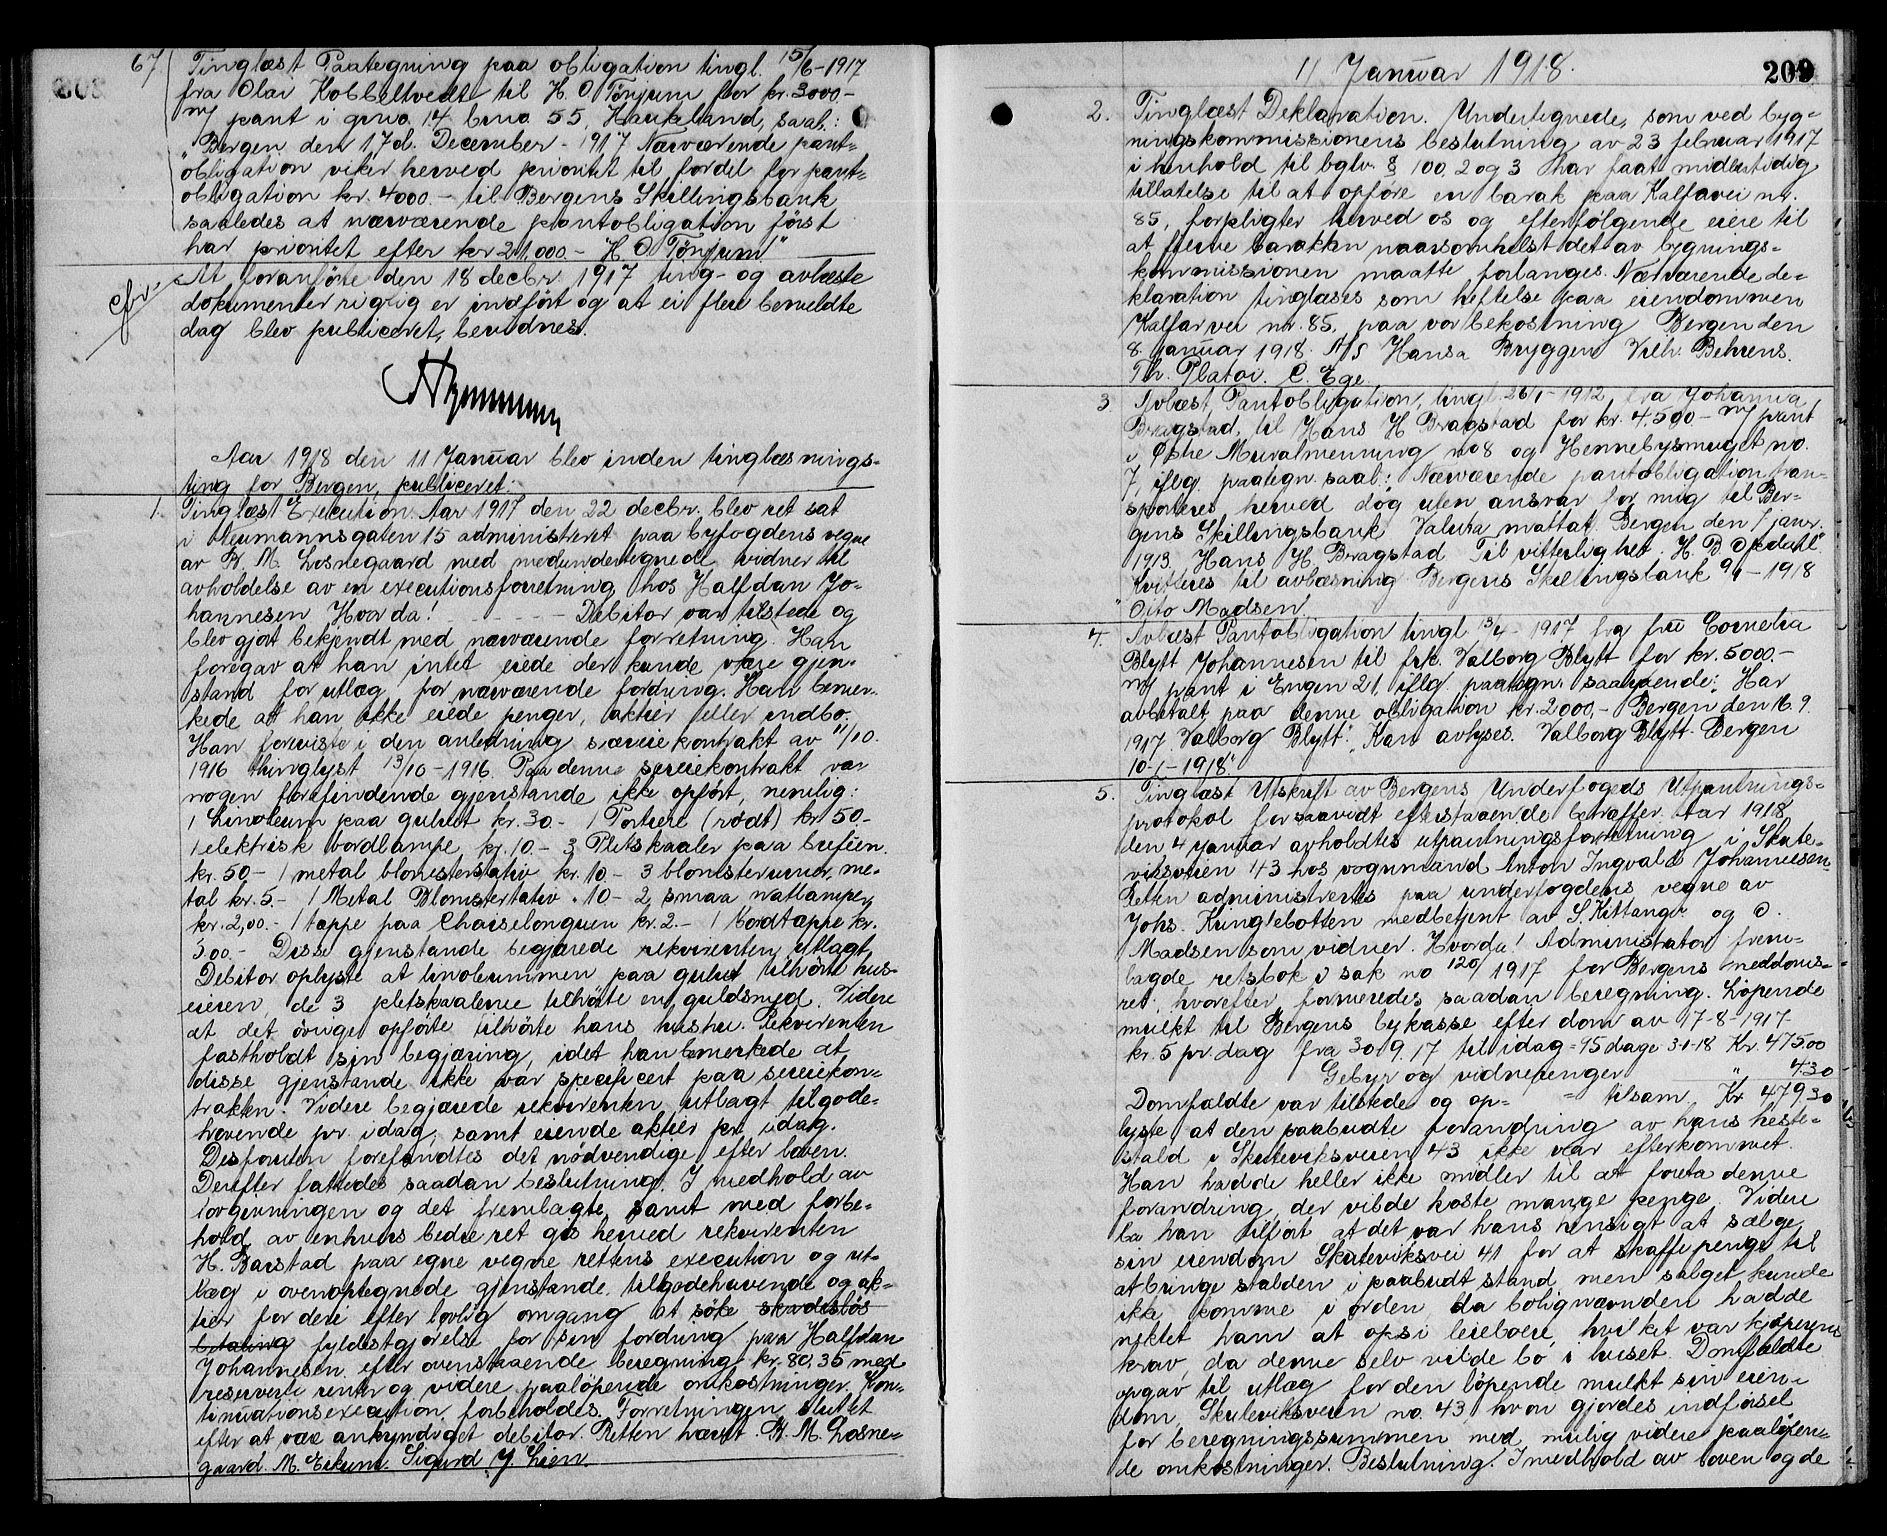 67 Tinglæst Paategning paa obligation tingl. 15/6-1917
fra Olai Kobbeltvedt til H. O. Tönjum for kr. 3000.-
m/ pant i gno. 14 bno. 55, Haukeland, saal.:
"Bergen den 17d. December - 1917 Nærværende pant=
obligation viker herved prioritet til fordel for pant=
obligation kr. 4000.- til Bergens Skillingsbank
saaledes at nærværende pantobligation først
har prioritet efter kr 21,000.- H. O. Tönjum"
At foranførte den 18 decbr. 1917 ting- og avlæste
cfr.
dokumenter rigtig er indført og at ei flere bemeldte
dag blev publiceret, bevidnes.
Aar 1918 den 11 Januar blev inden tinglæsnings-
ting for Bergen, publiceret:
1. Tinglæst Execution. Aar 1917 den 22 decbr. blev ret sat
i Neumannsgaten 15 administreret paa byfogdens vegne
av K. M. Losnegaard med medundertegnede vidner til
avholdelse av en executionsforretning hos Halfdan Jo-
hannesen Hvorda! - - - - Debitor var tilstede og
blev gjort bekjendt med nærværende forretning. Han
foregav at han intet eiede der kunde være gjen-
stand for utlæg for nærværende fordring. Han bemer-
kede at han ikke eiede penger, aktier eller indbo.
Han foreviste i den anledning særeiekontrakt av 11/10.
1916 thinglyst 13/10-1916. Paa denne særeiekontrakt var
nogen forefindende gjenstande ikke opført, nemlig:
1 Linoleum paa gulvet kr. 30.- 1 Portiere (rödt) kr 50.-
1 elektrisk bordlampe kr. 10.- 3 Pletskaaler paa buffeen
kr. 50.- 1 metal blomsterstativ kr. 10.- 3 blomsterurner, me-
tal kr. 5.- 1 Metal Blomsterstativ . 10 - 2 smaa natlamper
kr. 2,00.- 1 tæppe paa Chaiselonguen kr. 2.- 1 bordtæppe kr.
3,00.- Disse gjenstande begjærede rekvirenten utlagt.
Debitor oplyste at linoleummen paa gulvet tilhörte hus-
eieren de 3 pletskaalene tilhörte en guldsmed. Videre
at det övrige opförte tilhörte hans hustru. Rekvirenten
fastholdt sin begjæring, idet han bemerkede at
disse gjenstande ikke var specificert paa særeiekon-
trakten. Videre begjærede rekvirenten utlagt tilgode-
havende pr. idag, samt eiende aktier pr. idag.
Desforuten forefandtes det nödvendige efter loven.
Derefter fattedes saadan beslutning. I medhold av
lovgivningen og det fremlagte samt med forbe-
hold av enhvers bedre ret gis herved rekvirenten
H. Barstad paa egne vegne rettens execution og ut-
læg i ovenoptegnede gjenstande, tilgodehavende og ak-
tier for deri efter lovlig omgang at söke skadeslös
betaling fyldestgjörelse for sin fordring paa Halfdan
Johannesen efter ovenstaaende beregning kr. 80,35 med
reserverte renter og videre paalöpende omkostninger. Kon-
tinuationsexecution forbeholdes. Forretningen sluttet
efter at være ankyndiget debitor. Retten hævet. K. M. Losne-
gaard. M. Eikum. Sigurd J. Lien.
11 Januar 1918.
209
2. Tinglæst Deklaration. Undertegnede, som ved byg-
ningskommissionens beslutning av 23 februar 1917
i henhold til bglv. § 100, 2 og 3 har faat midlertidig
tillatelse til at opföre en barak paa Kalfarvei nr.
85, forpligter herved os og efterfölgende eiere til
at fjerne barakken naarsomhelst det av bygnings-
kommissionen maatte forlanges. Nærværende de-
klaration tinglæses som heftelse paa eiendommen
Kalfarvei nr. 85, paa vor bekostning Bergen den
8. januar 1918. A/S Hansa Bryggeri Vilh. Behrens.
Th. Platou. C. Ege.
3. Avlæst Pantobligation, tingl. 26/1-1912, fra Johanna
Bragstad, til Hans H. Bragstad for kr. 4,500.- m/ pant
i Østre Muralmenning no 8 og Hennebysmuget no.
7, iflg. paategn. saal.: Nærværende pantobligation tran-
sporteres herved dog uten ansvar for mig til Ber-
gens Skillingsbank Valuta mottat. Bergen den 7 janr.
1913. Hans H. Bragstad Til vitterlighet: H. B. Opdahl".
Kvitteres til avlæsning Bergens Skillingsbank 9/1-1918
"Otto Madsen".
4. Avlæst Pantobligation tingl 13/4-1917 fra fru Cornelia
Blytt Johannesen til frk. Valborg Blytt for kr. 5000.-
m/ pant i Engen 21, iflg. paategn. saalydende: Har
avbetalt paa denne obligation kr. 2000,- Bergen den 16.9.
1917. Valborg Blytt". Kan avlyses. Valborg Blytt. Bergen
10-1-1918".
5. Tinglæst Utskrift av Bergens Underfogeds Utpantnings-
protokol forsaavidt efterstaaende betræffer. Aar 1918
den 4 januar avholdtes utpantningsforretning i Skute-
viksveien 43 hos vognmand Anton Ingvald Johannesen.
Retten administreredes paa underfogdens vegne av
Johs. Kringlebotten medbetjent av S. Kittang og O.
Madsen som vidner. Hvorda! Administrator frem-
lagde retsbok i sak no 120/1917 for Bergens meddoms-
ret, hvorefter formeredes saadan beregning. Löpende
mulkt til Bergens bykasse efter dom av 17-8-1917.
kr. 5 pr. dag fra 30.9.17 til idag = 95 dage 3-1-18 Kr. 475.00
Gebyr og vidnepenger " 4.30
Domfældte var tilstede og op= tilsam. Kr 479.30
lyste at den paabudte forandring av hans heste-
stald i Skuteviksveien 43 ikke var efterkommet.
Han hadde heller ikke midler til at foreta denne
forandring, der vilde koste mange penge. Videre
ba han tilført at det var hans hensigt at sælge
sin eiendom Skuteviksvei 41 for at skaffe penge til
at bringe stalden i paabudt stand, men salget kunde
ikke komme i orden, da bolignævnden hadde
negtet ham at opsi leieboere, hvilket var kjöperens
krav, da denne selv vilde bo i huset. Domfældte
opgav til utlæg for den löpende mulkt sin eien-
dom, Skuteviksveien no. 43, hvori gjordes indförsel
for beregningssummen med mulig videre paalöpen-
de omkostninger. Beslutning! I medhold av loven og de